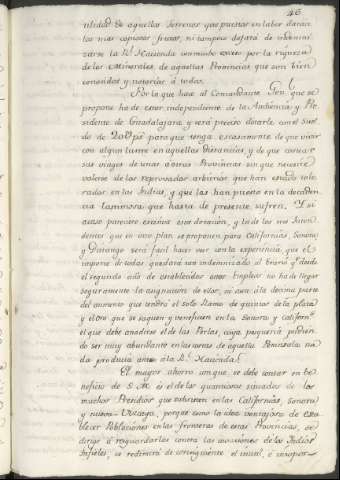 46
utilidad de aquellos terrenos que puestos en labor daran
los mas copiosos frutos, ni tampoco dejará de indemni-
zarse la Rl. Hacienda con mucho exceso por la riqueza
de los Minerales de aquellas Provincias que son bien
conocidos y notorios á todos.
Por lo que hace al Comandante Genl. que se
propone ha de estar independiente de la Audiencia y Pre-
sidente de Guadalaxara y será preciso dotarle con el suel-
do de 20U ps. para que tenga escasamente de que vivir
con algun lustre en aquellas distancias, y de que costear
sus viages de unas á otras Provincias sin que necesite
valerse de los reprovados arbitrios que han estado tole-
rados en las Indias, y que las han puesto en la decaden-
cia lamosa que hasta de presente sufren. Y si
acaso pareciere excesiva esta dotacion, y la de los tres Inten-
dentes que en otro plan se proponen para Californias, Sonora
y Durango será facil hacer ver con la experiencia, que el
importe de todas quedará indemnizado al Erario pues desde
el segundo año de establecidos estos Empleos no ha de llegar
seguramente la asignacion de ellos, ni aun á la decima parte
del aumento que tendrá el solo Ramo de quintos de la plata
y el Oro que se saquen y beneficien en la Sonora y Californs.
el que debe añadirse el de las Perlas, cuya pesquería podrán
de ser muy abundante en las costas de aquella Peninsula na-
da producia antes á la Rl. Hacienda.
El mayor ahorro aunque se debe contar en be-
neficio de S. M. es el de los quantiosos situados de los
muchos Presidios que subsisten en las Californias, Sonora
y nueva-Vizcaya, porque como la idea ventajosa de esta-
blecer Poblaciones en las fronteras de estas Provincias, se
dirige á resguardarlas contra las invasiones de los Indios
Infieles, se redimirá de consiguiente el inutil, é insopor-